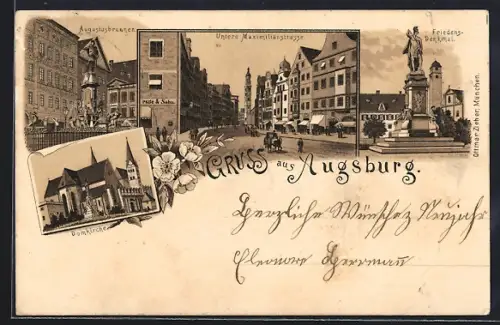 Augustusbrunnen.
Untere Maximilianstrasse.
Friedens-
Denkmal.
Ottmar Zieher, München.
Domkirche.
Gruss aus Augsburg.
Herzliche Wünsche z. Neujahr
Eleonore Herrmann